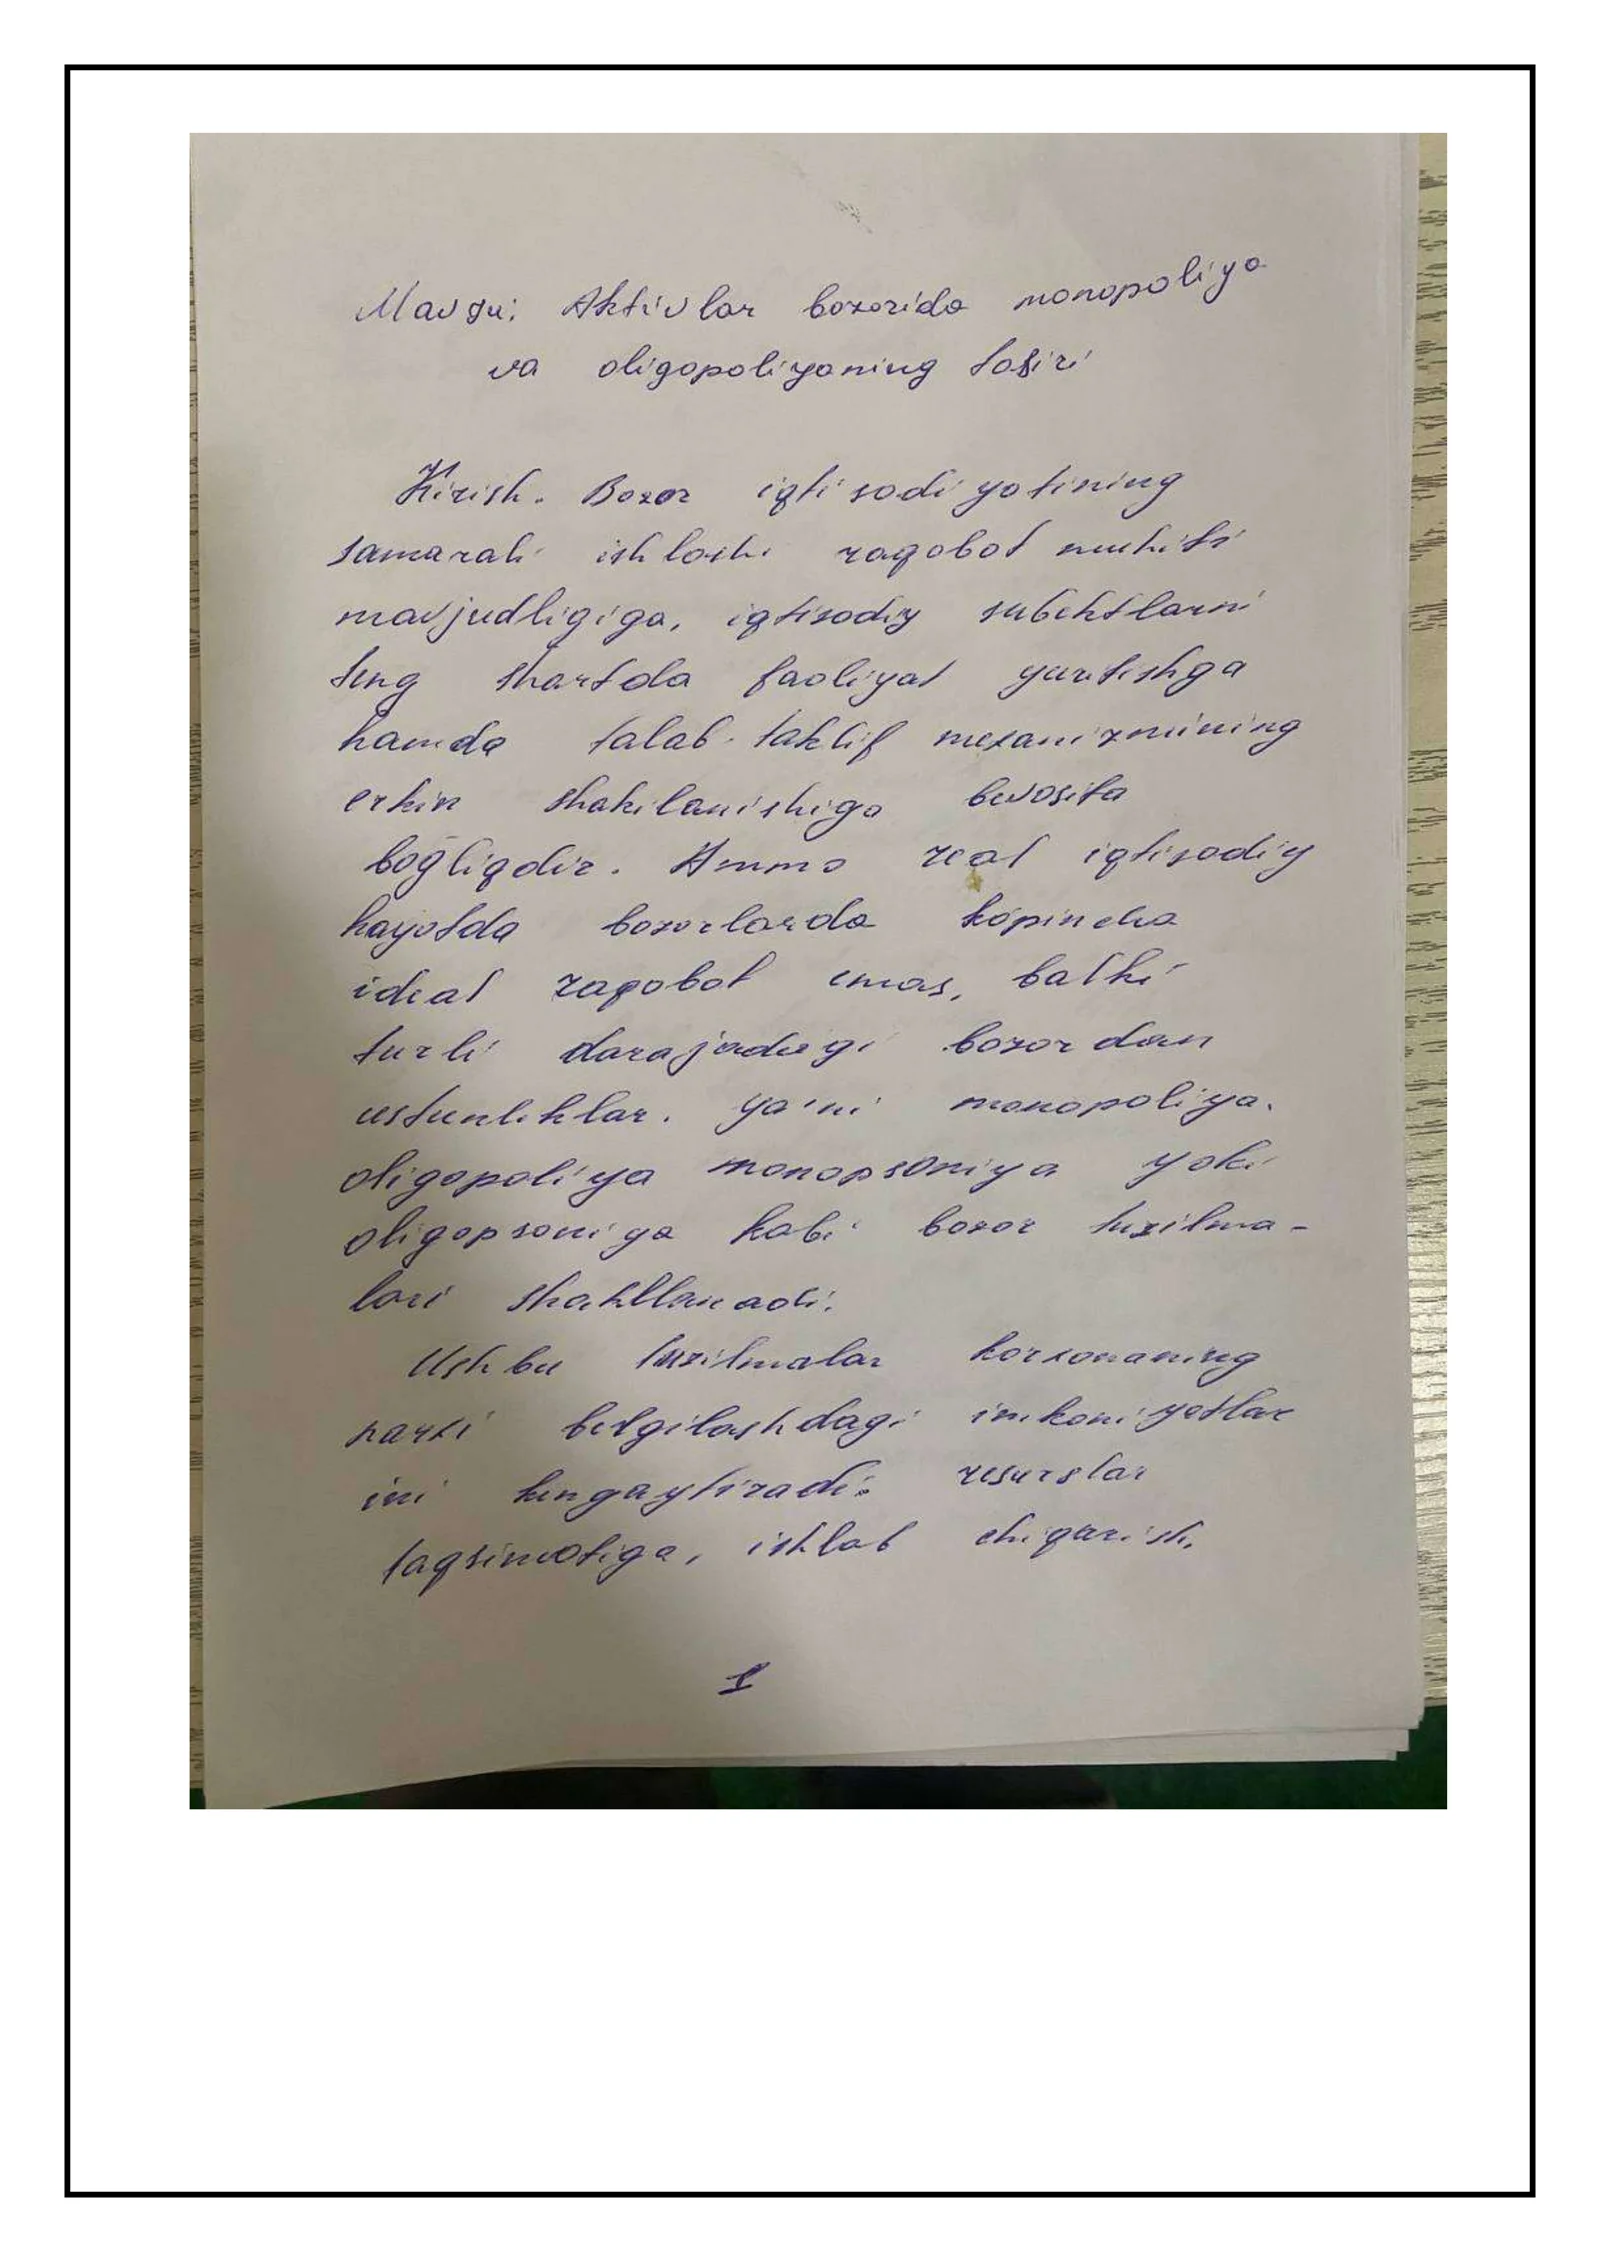 Mavzu: Aktivlar bozorida monopoliya
va oligopoliyaning tasiri
Kirish. Bozor iqtisodiyotining
samarali ishlashi raqobot muhiti
mavjudligiga, iqtisodiy subektlarni
teng shartda faoliyat yuritishga
hamda talab-taklif mexanizmining
erkin shakilanishiga bevosita
bog̅liqdir. Ammo real iqtisodiy
hayotda bozorlarda kópincha
ideal raqobot emas, balki
turli darajadagi bozordan
ustunliklar. ya'ni monopoliya.
oligopoliya monopsoniya yoki
oligopsoniya kabi bozor tuzilma-
lari shakllanadi.
Ushbu tuzilmalar korxonaning
narxi belgilashdagi imkoniyatlar
ini kengaytiradi: resurslar
taqsimotiga, ishlab chiqarish,
1